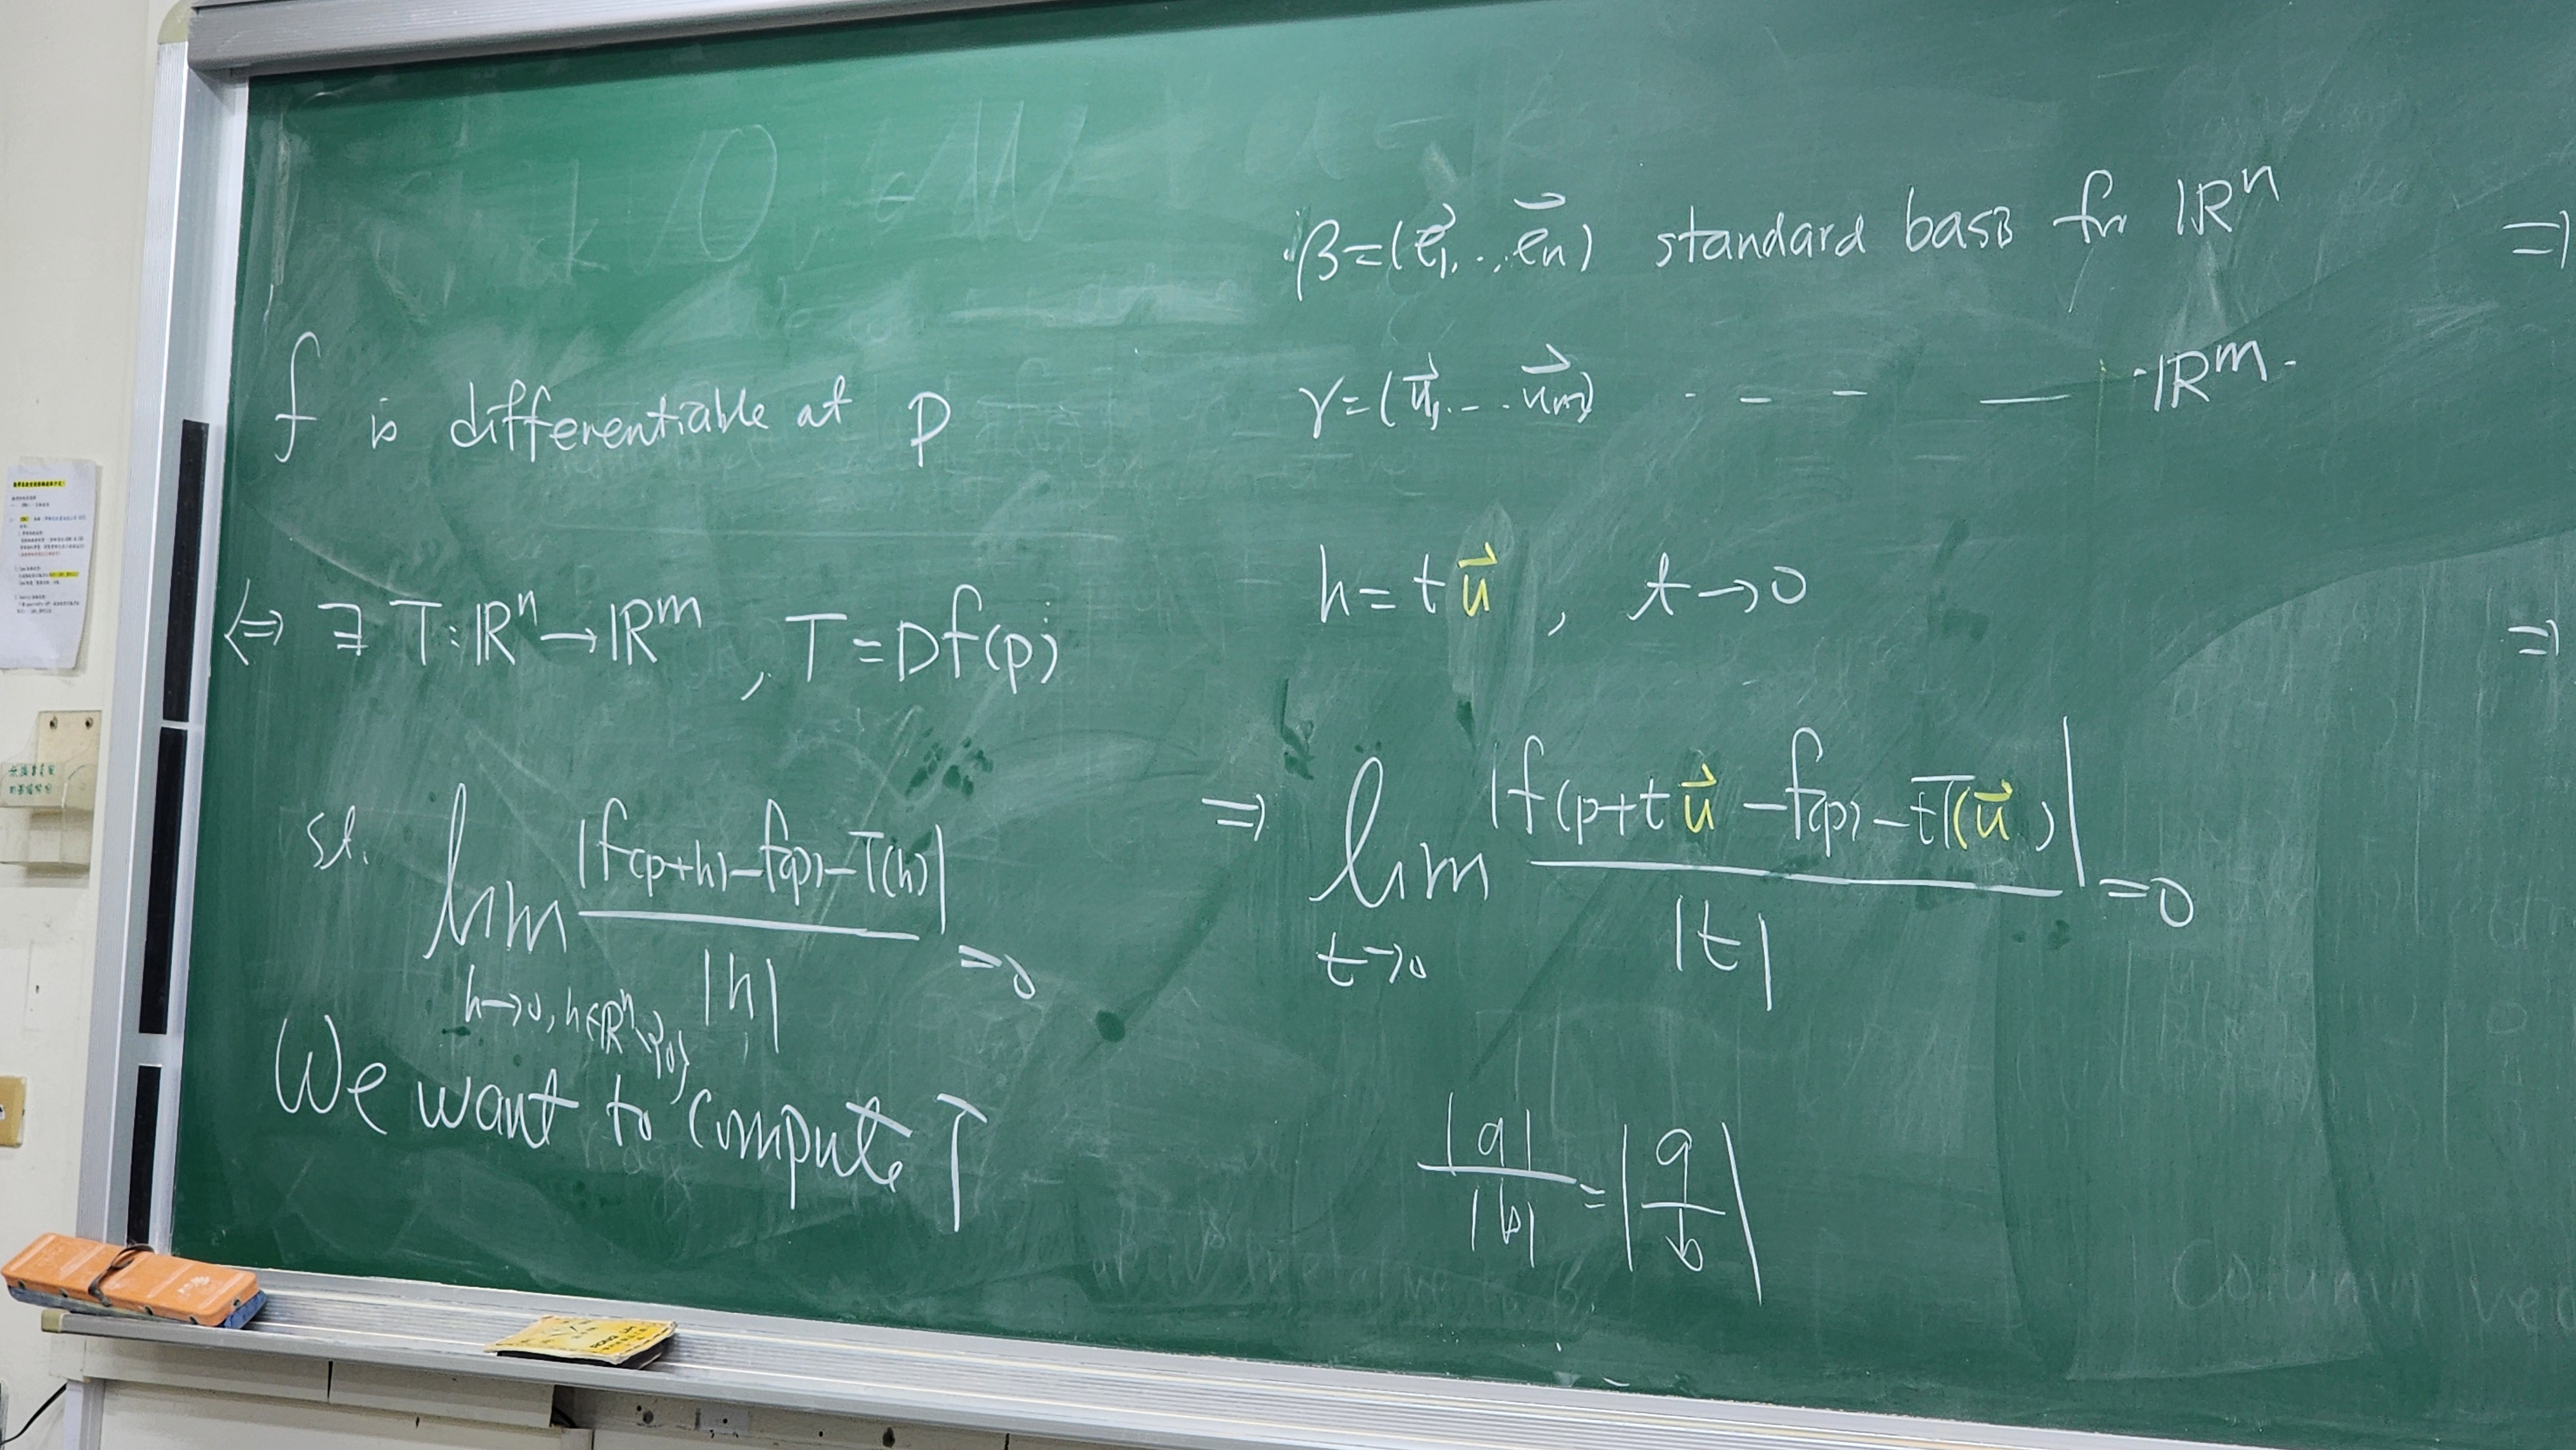 f is differentiable at p
⇔ ∃ T: ℝⁿ → ℝᵐ, T = Df(p)
s.t. lim_{h→0, h∈ℝⁿ\{0}} |f(p+h)-f(p)-T(h)| / |h| = 0
We want to compute T
β = (e⃗₁, ..., e⃗ₙ) standard basis for ℝⁿ
γ = (u⃗₁, ... u⃗ₘ) - - - — ℝᵐ.
h = t u⃗ , t → 0
⇒ lim_{t→0} |f(p+t u⃗ - f(p) - tT(u⃗)| / |t| = 0
|a| / |b| = |a/b|
⇒
⇒